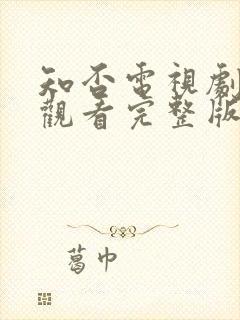 知否電視劇
觀看完整版
葛巾